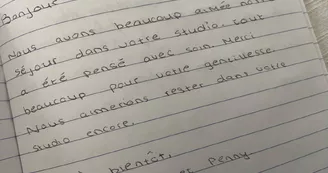 Bonjour
Nous avons beaucoup aimée notre
séjour dans votre studio. tout
a été pensé avec soin. Merci
beaucoup pour votre gentillesse.
Nous aimerions rester dans votre
studio encore.
bientôt,
Penny